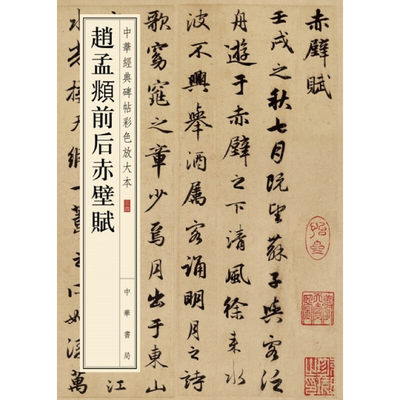 赤壁賦
壬戌之秋七月既望蘇子與客泛
舟遊于赤壁之下清風徐來水
波不興舉酒屬客誦明月之詩
歌窈窕之章少焉月出于東山
江
水光接天縱一葦之所如凌萬
中華經典碑帖彩色放大本
中華書局
趙孟頫前后赤壁賦